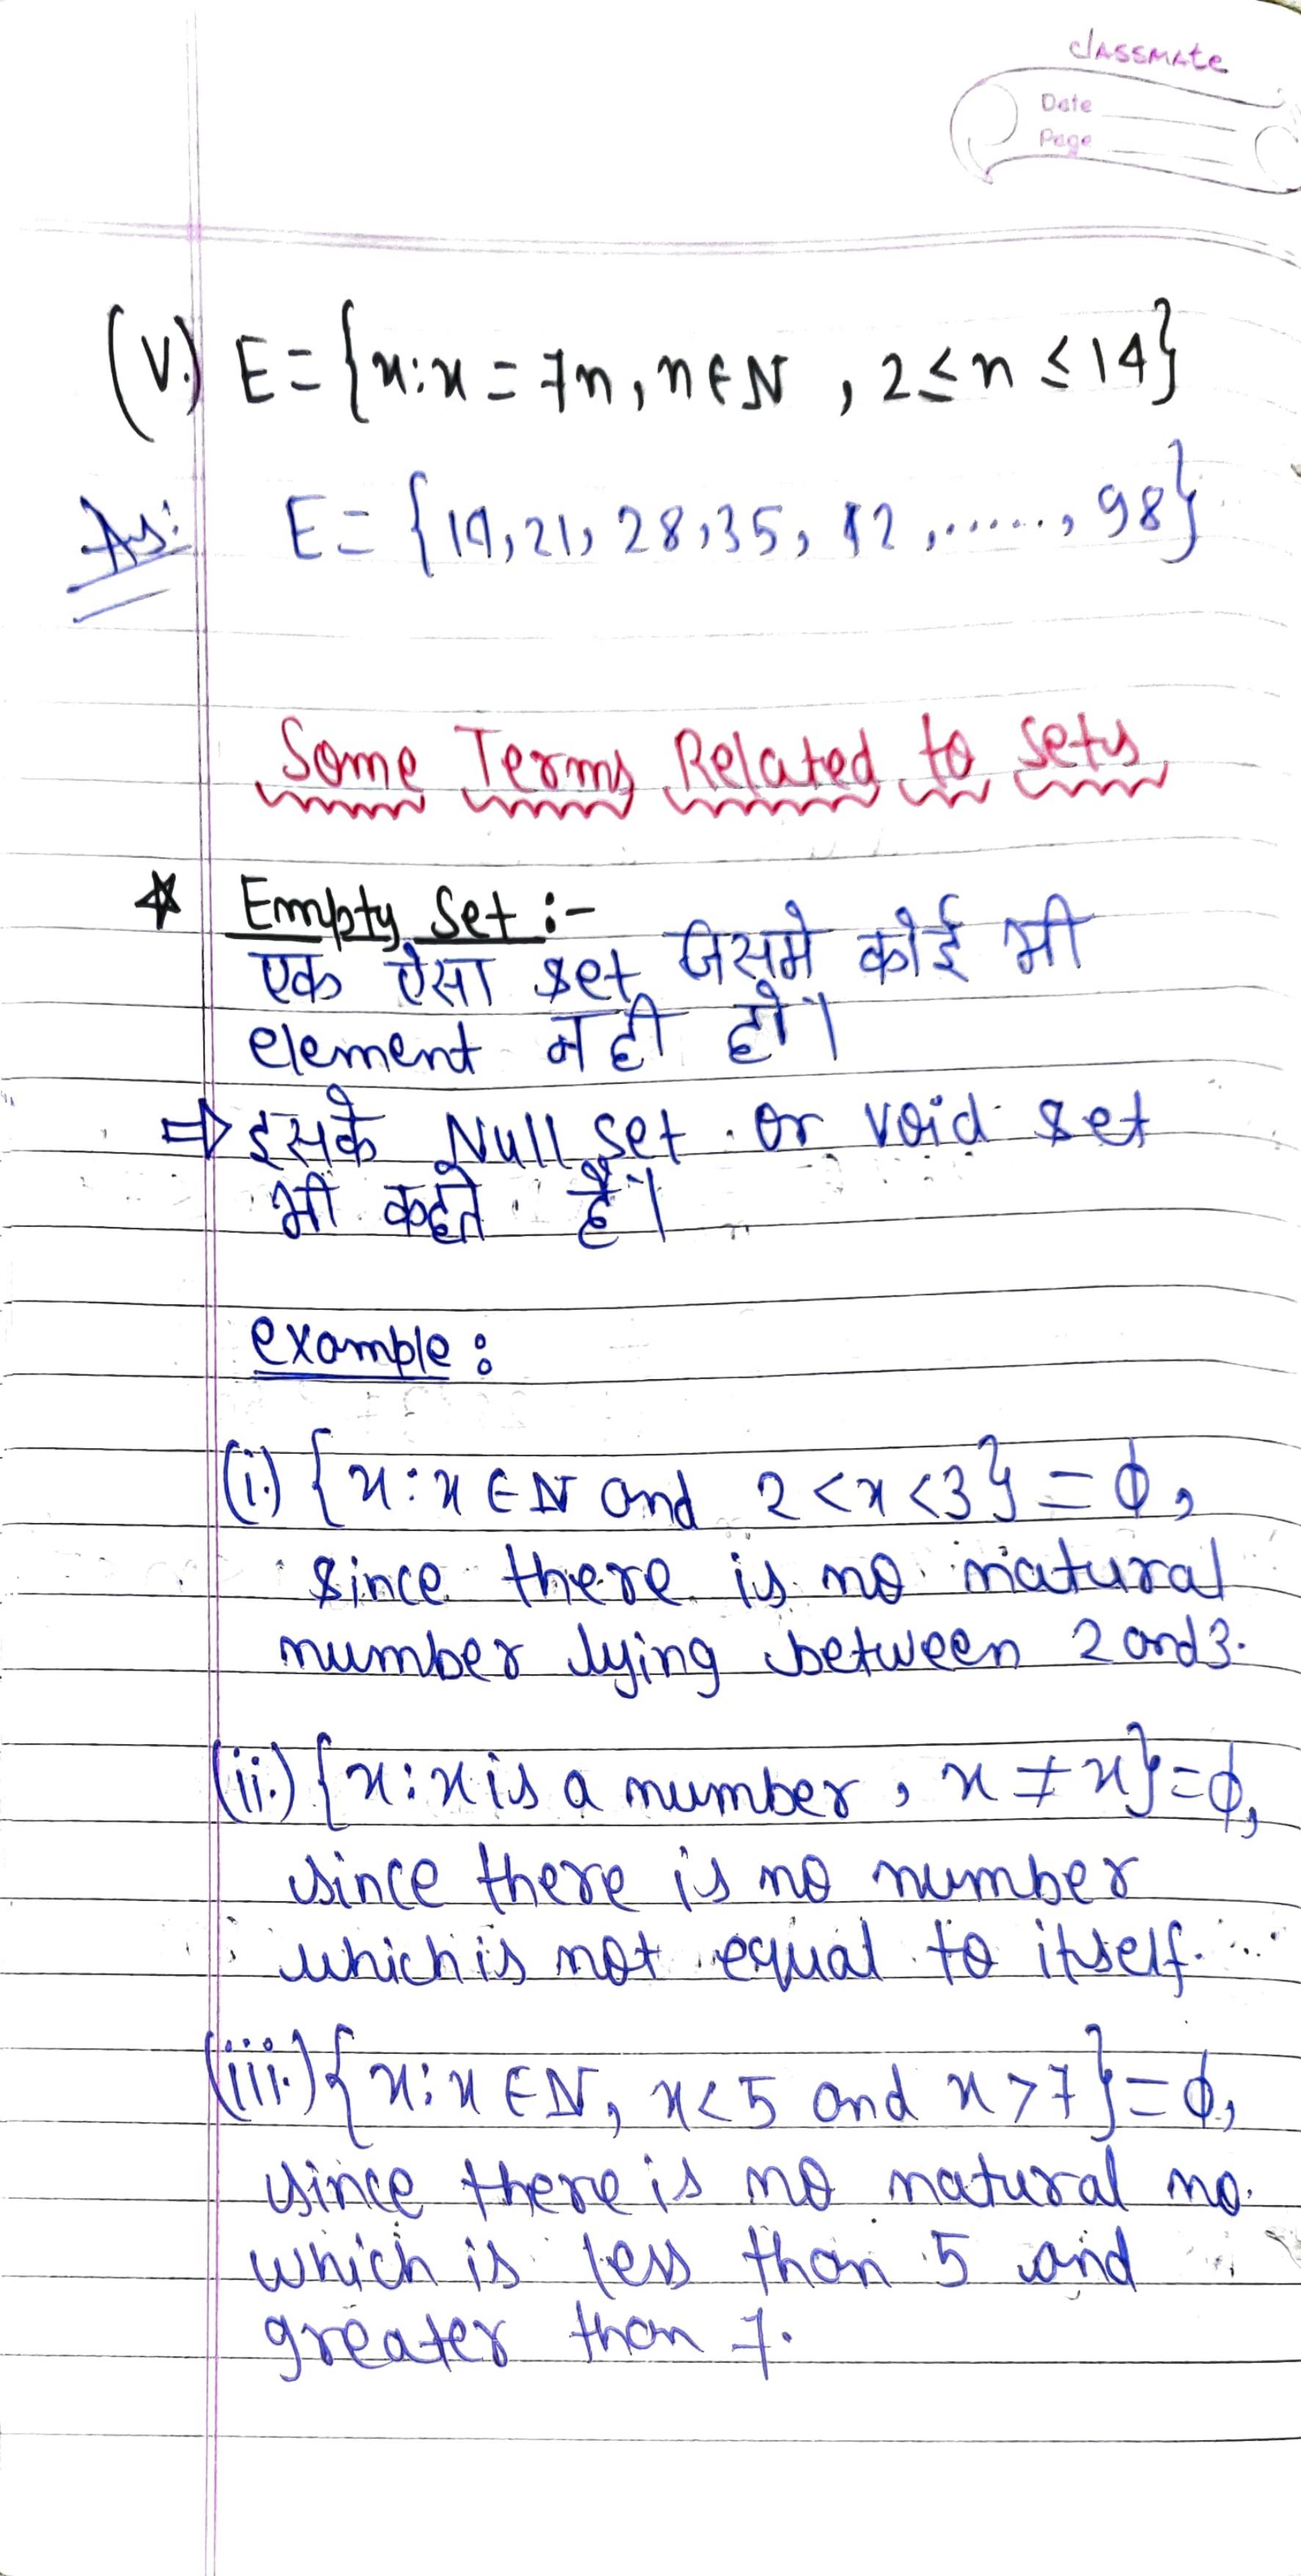 classmate
Date
Page
(V.) E = {x : x = 7n, n ∈ N , 2 ≤ n ≤ 14}
Ans: E = {14, 21, 28, 35, 42, ......, 98}
Some Terms Related to sets
☆ Empty Set :-
एक ऐसा set जिसमे कोई भी
element नही हो।
⇒ इसके Null set or void set
भी कहते है।
example :
(i.) {x : x ∈ N and 2 < x < 3} = ϕ,
since there is no natural
number lying between 2 and 3.
(ii.) {x : x is a number , x ≠ x} = ϕ,
since there is no number
which is not equal to itself.
(iii.) {x : x ∈ N, x < 5 and x > 7} = ϕ,
since there is no natural no.
which is less than 5 and
greater than 7.